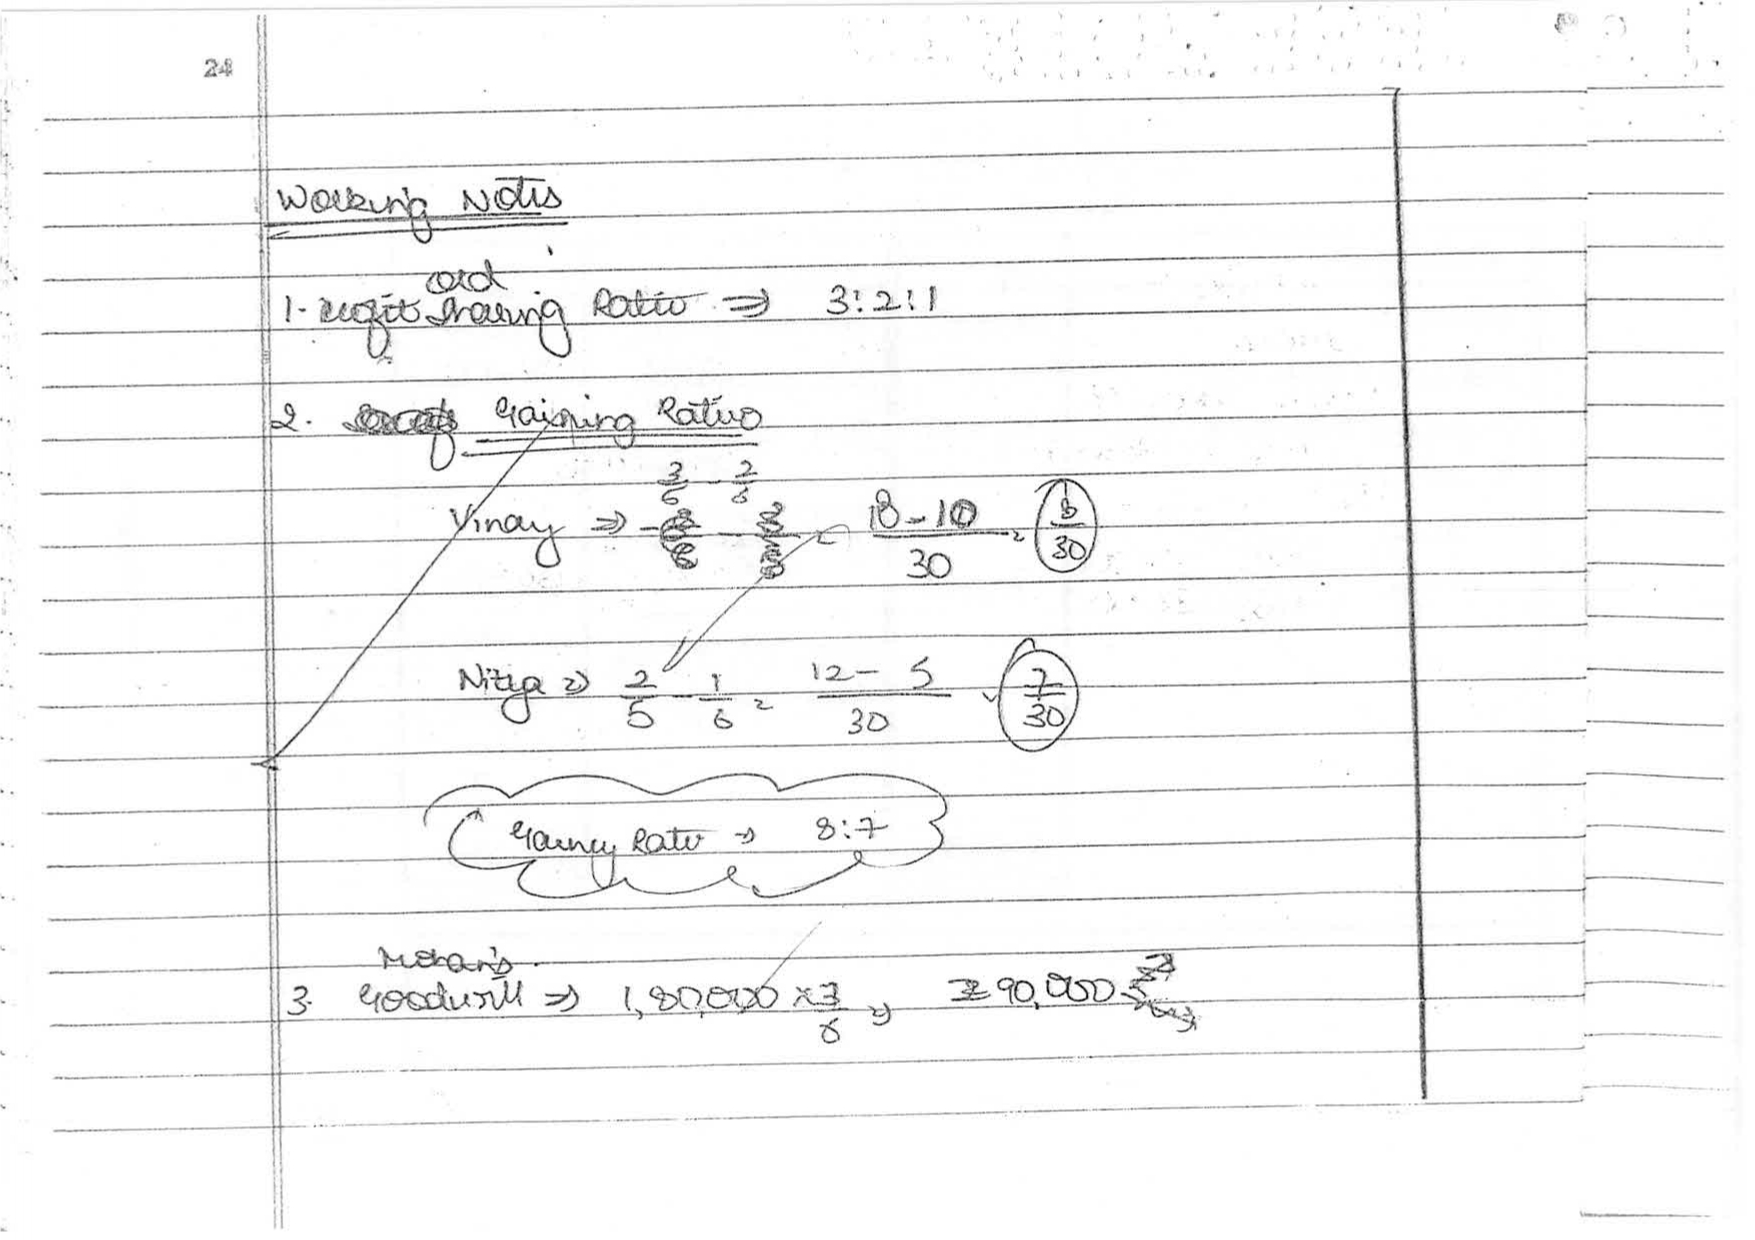 24
Working Notes
old
1. Profit Sharing Ratio ⇒ 3:2:1
2. Gaining Ratio
3/6 - 2/6
Vinay ⇒ = 18-10/30 = 8/30
Nitya ⇒ 2/5 - 1/6 = 12-5/30 = 7/30
Gaining Ratio ⇒ 8:7
Mohan's
3. Goodwill ⇒ 1,80,000 × 3/6 ⇒ ₹ 90,000